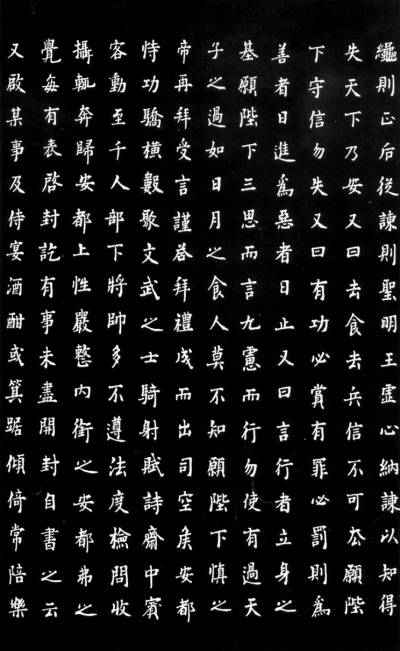 繩則正后從諫則聖明王虛心納諫以知得
失天下乃安又曰去食去兵信不可去願陛
下守信勿失又曰有功必賞有罪必罰則爲
善者日進爲惡者日止又曰言行者立身之
基願陛下三思而言九慮而行勿使有過天
子之過如日月之食人莫不知願陛下慎之
帝再拜受言謹答拜禮成而出司空侯安都
恃功驕橫數聚文武之士騎射賦詩齋中賓
客動至千人部下將帥多不遵法度檢問收
攝輒奔歸安都上性嚴整內銜之安都弗之
覺每有表啓封訖有事未盡開封自書之云
又啟某事及侍宴酒酣或箕踞傾倚常陪樂